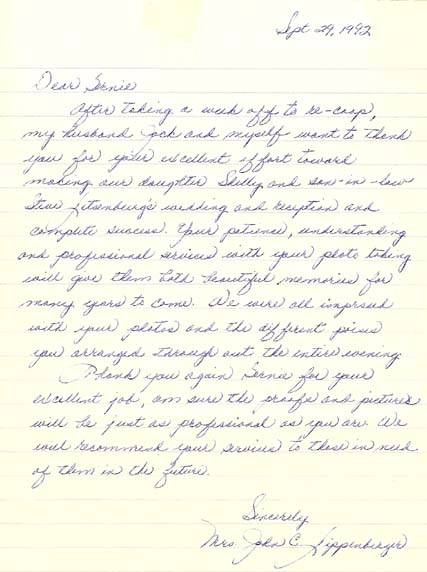 Sept 29, 1992
Dear Bernie
After taking a week off to re-coop,
my husband Jack and myself want to thank
you for your excellent effort toward
making our daughter Shelly and son-in-law
Steve wedding and reception and
complete success. Your patience, understanding
and professional services with your photo taking
will give them both beautiful memories for
many years to come. We were all impressed
with your photos and the different poses
you arranged through out the entire evening.
Thank you again Bernie for your
excellent job, am sure the proofs and pictures
will be just as professional as you are. We
will recommend your services to those in need
of them in the future.
Sincerely
Mrs John C. Lippenberger